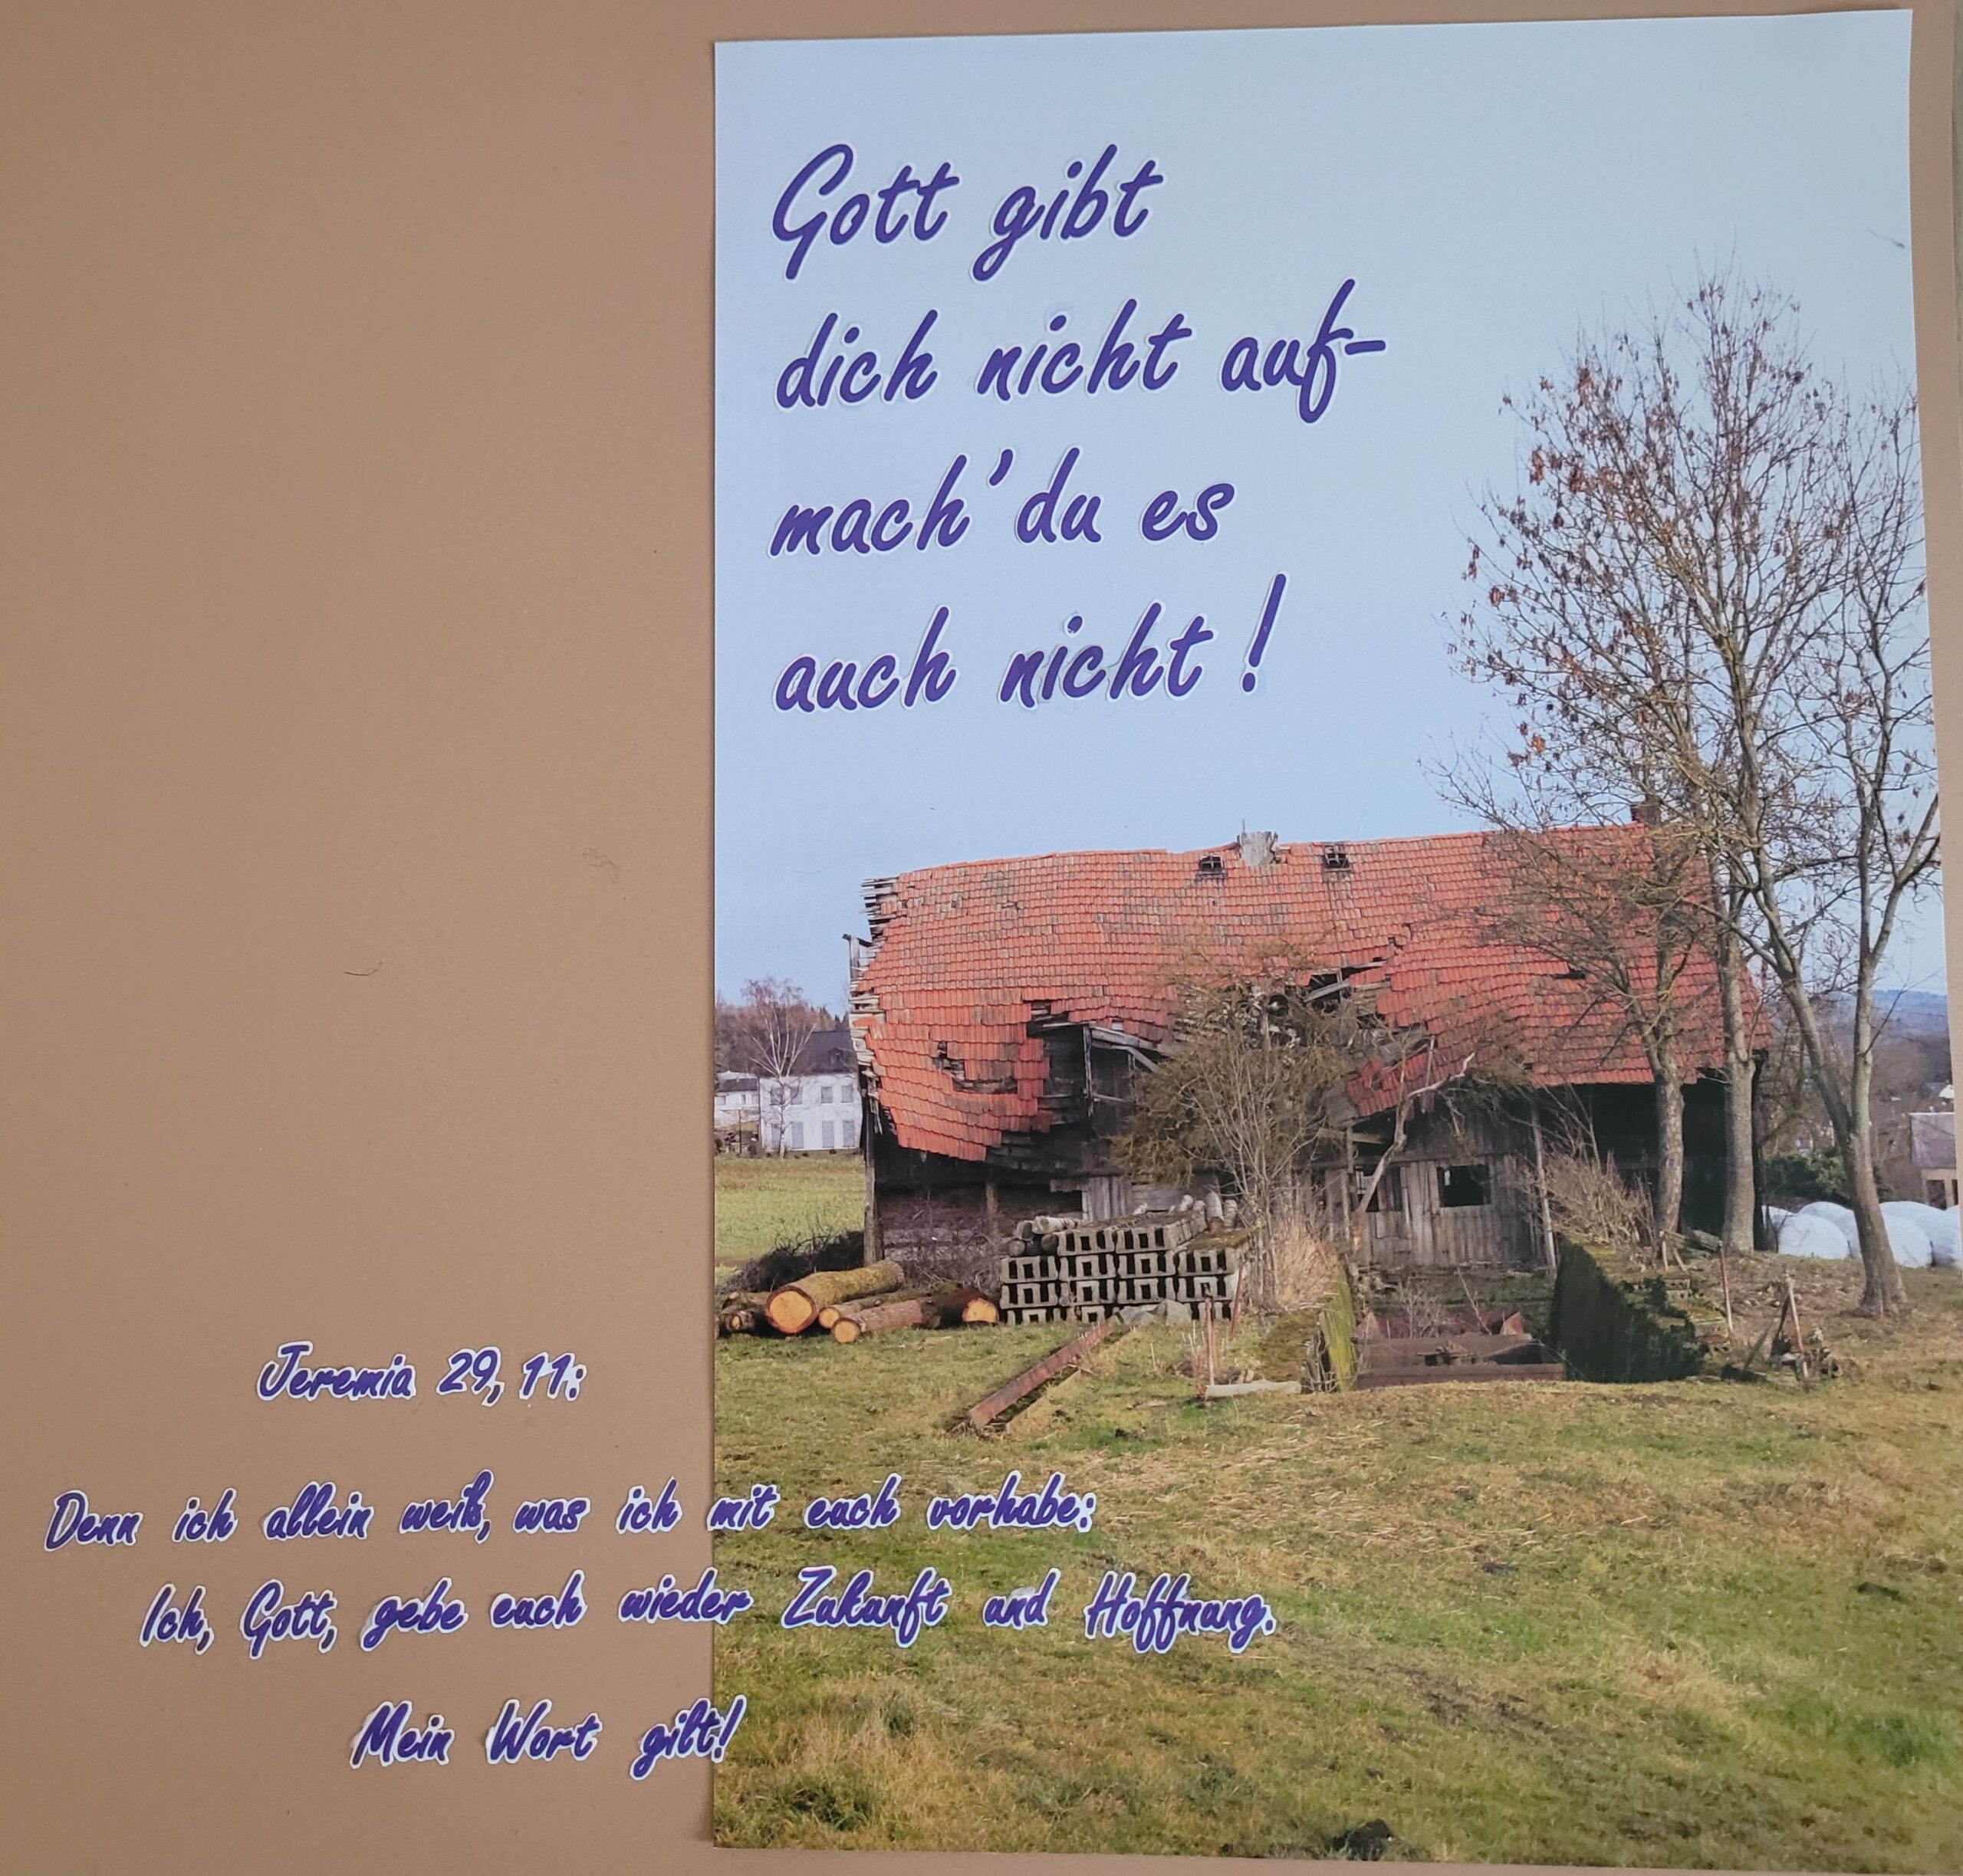 Gott gibt
dich nicht auf-
mach' du es
auch nicht!
Jeremia 29, 11:
Denn ich allein weiß, was ich mit euch vorhabe:
Ich, Gott, gebe euch wieder Zukunft und Hoffnung.
Mein Wort gilt!